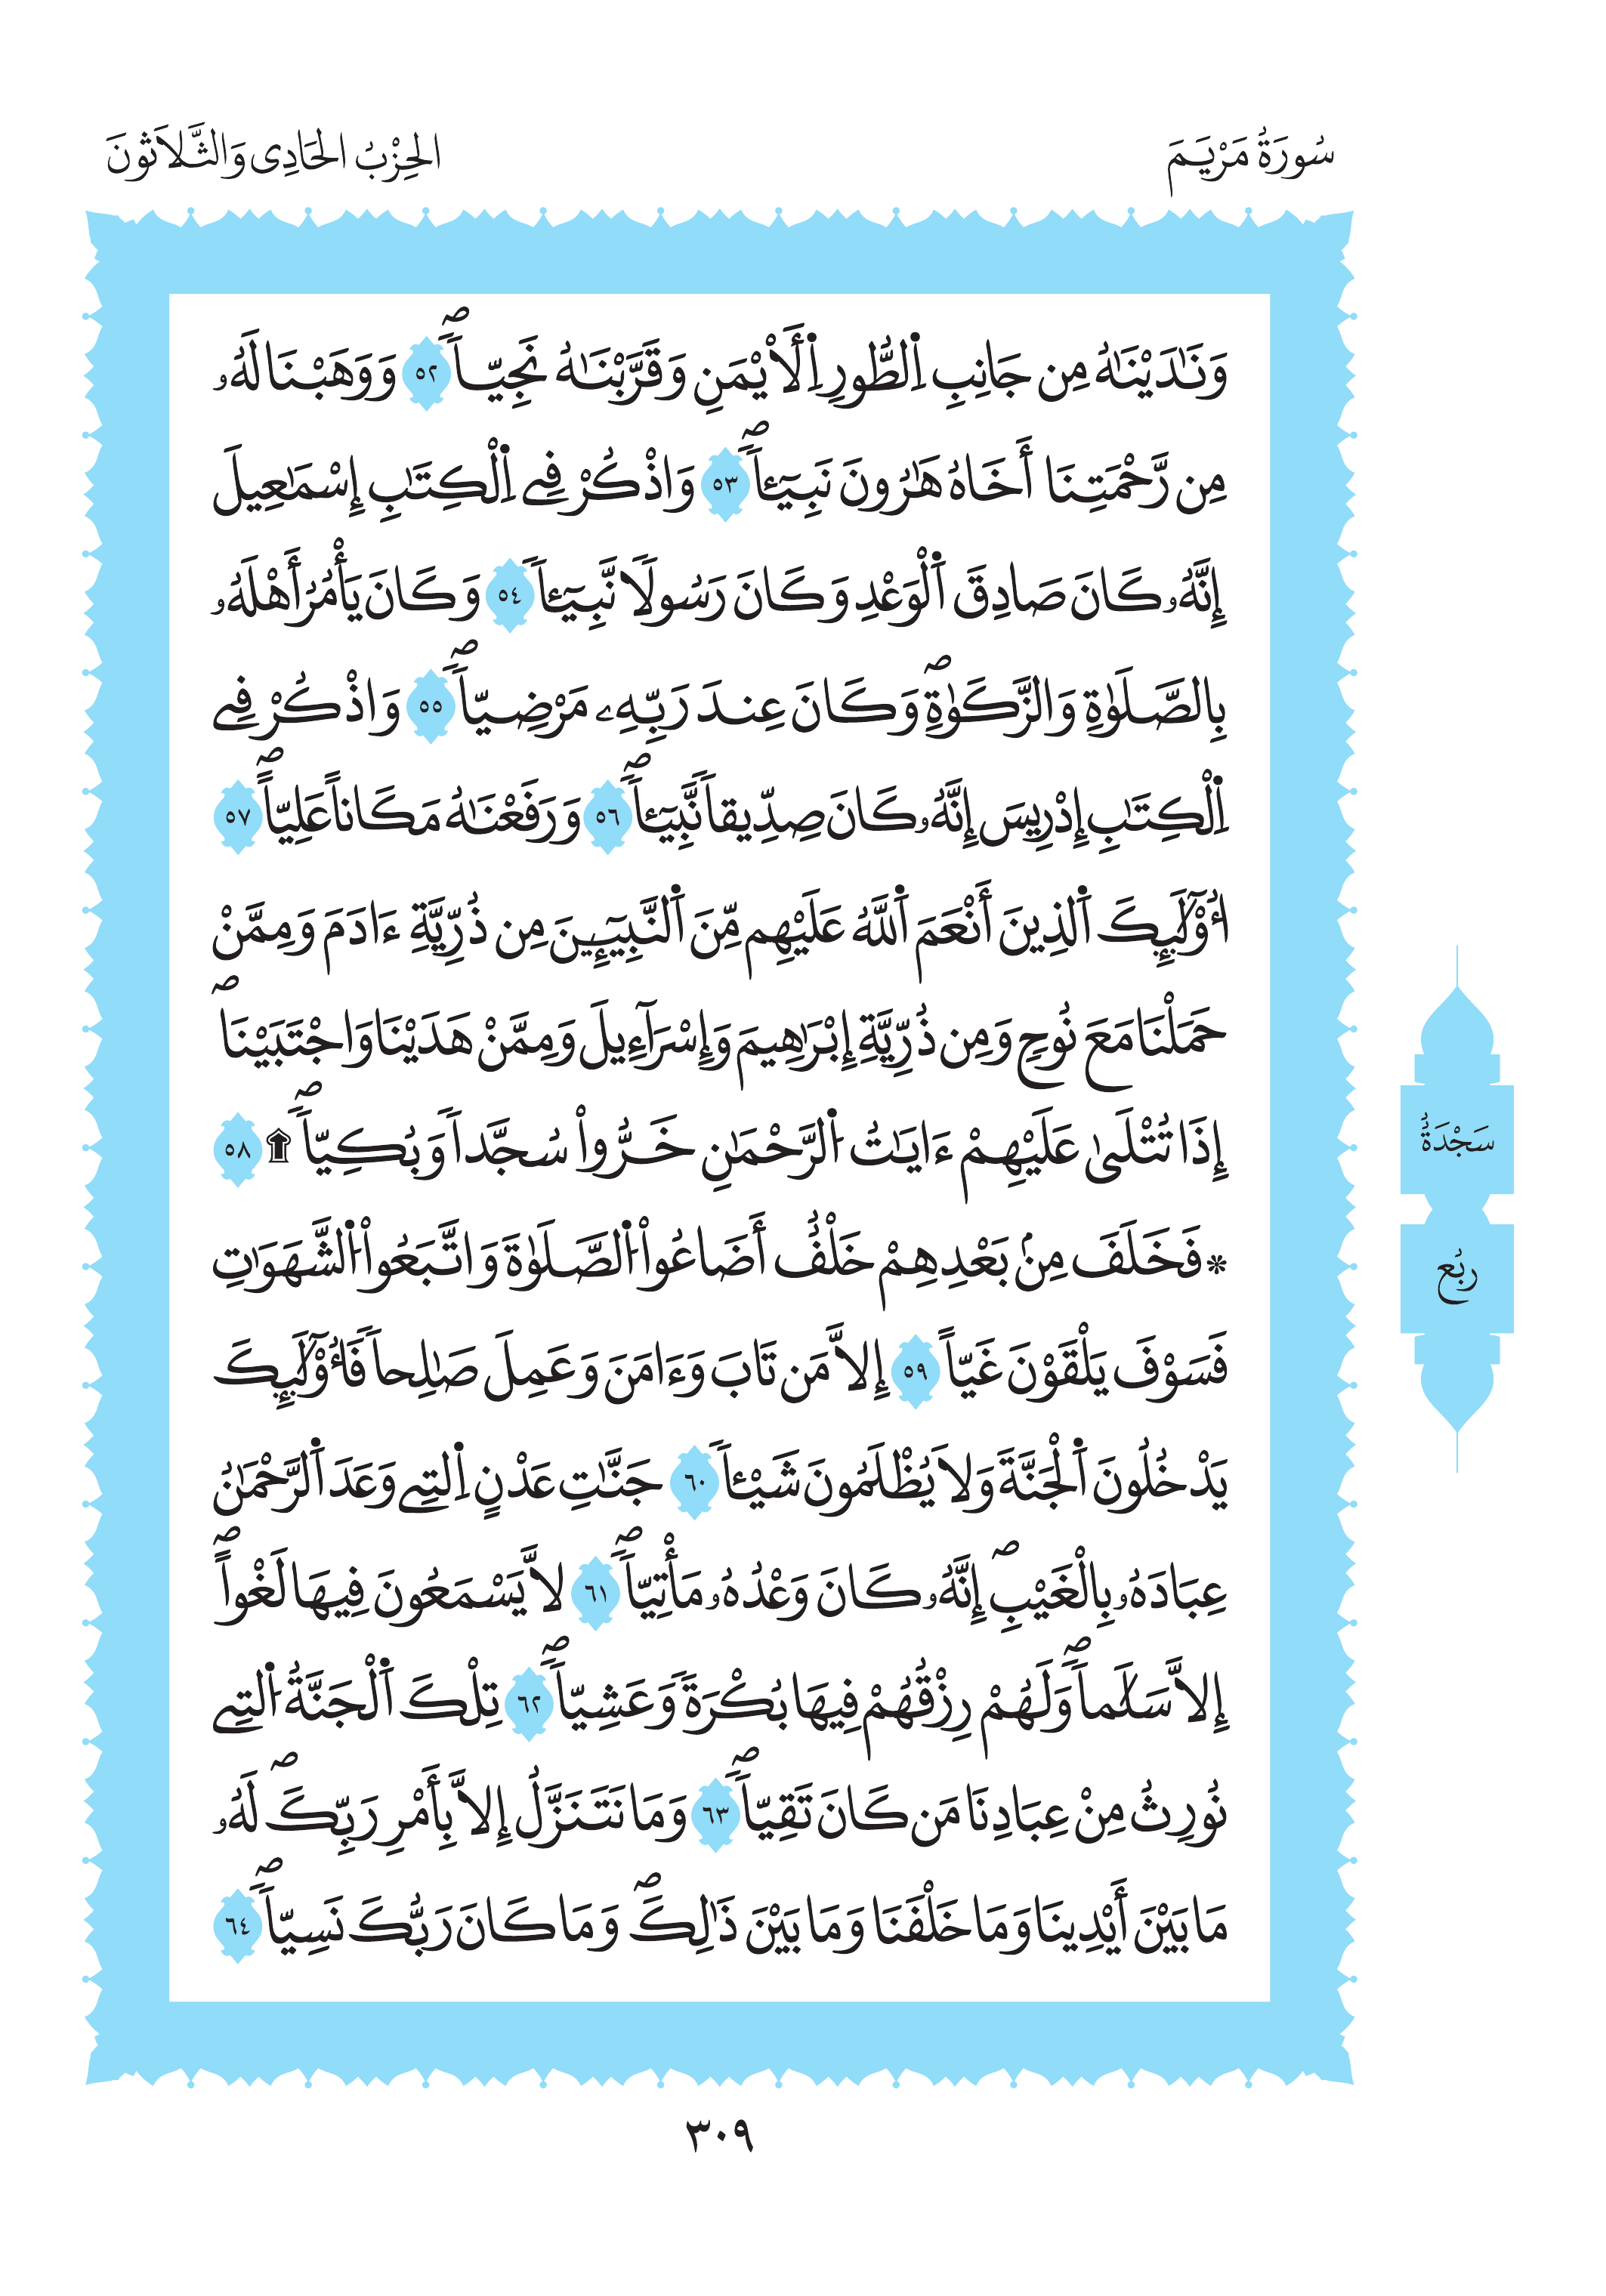 سُورَةُ مَرْيَمَ
الحِزْبُ الحَادِى وَالثَّلاَثُونَ
وَنَٰدَيْنَٰهُ مِن جَانِبِ اِ۬لطُّورِ اِ۬لَايْمَنِ وَقَرَّبْنَٰهُ نَجِيّاࣰۖ ٥٢ وَوَهَبْنَا لَهُۥ
مِن رَّحْمَتِنَا أَخَاهُ هَٰرُونَ نَبِيٓـٔاࣰۖ ٥٣ وَاذْكُرْ فِے اِ۬لْكِتَٰبِ إِسْمَٰعِيلَ
إِنَّهُۥ كَانَ صَادِقَ اَ۬لْوَعْدِ وَكَانَ رَسُولاࣰ نَّبِيٓـٔاࣰ ٥٤ وَكَانَ يَأْمُرُ أَهْلَهُۥ
بِالصَّلَوٰةِ وَالزَّكَوٰةِۖ وَكَانَ عِندَ رَبِّهِۦ مَرْضِيّاࣰۖ ٥٥ وَاذْكُرْ فِے
اِ۬لْكِتَٰبِ إِدْرِيسَ إِنَّهُۥ كَانَ صِدِّيقاࣰ نَّبِيٓـٔاࣰۖ ٥٦ وَرَفَعْنَٰهُ مَكَاناً عَلِيّاًۖ ٥٧
اُ۟وْلَٰٓئِكَ اَ۬لذِينَ أَنْعَمَ اَ۬للَّهُ عَلَيْهِم مِّنَ اَ۬لنَّبِيٓـِٕينَ مِن ذُرِّيَّةِ ءَادَمَ وَمِمَّنْ
حَمَلْنَا مَعَ نُوحٍ وَمِن ذُرِّيَّةِ إِبْرَٰهِيمَ وَإِسْرَآءِيلَ وَمِمَّنْ هَدَيْنَا وَاجْتَبَيْنَاۖ
إِذَا تُتْلَىٰ عَلَيْهِمْ ءَايَٰتُ اُ۬لرَّحْمَٰنِ خَرُّواْ سُجَّداࣰ وَبُكِيّاࣰۖ ۩ ٥٨
* فَخَلَفَ مِنۢ بَعْدِهِمْ خَلْفٌ أَضَاعُواْ اُ۬لصَّلَوٰةَ وَاتَّبَعُواْ اُ۬لشَّهَوَٰتِ
فَسَوْفَ يَلْقَوْنَ غَيّاً ٥٩ إِلاَّ مَن تَابَ وَءَامَنَ وَعَمِلَ صَٰلِحاࣰ فَأُوْلَٰٓئِكَ
يَدْخُلُونَ اَ۬لْجَنَّةَ وَلاَ يُظْلَمُونَ شَيْـٔاࣰ ٦٠ جَنَّٰتِ عَدْنٍ اِ۬لتِے وَعَدَ اَ۬لرَّحْمَٰنُ
عِبَادَهُۥ بِالْغَيْبِۖ إِنَّهُۥ كَانَ وَعْدُهُۥ مَأْتِيّاࣰۖ ٦١ لاَّ يَسْمَعُونَ فِيهَا لَغْواًۖ
إِلاَّ سَلَٰماࣰۖ وَلَهُمْ رِزْقُهُمْ فِيهَا بُكْرَةࣰ وَعَشِيّاࣰۖ ٦٢ تِلْكَ اَ۬لْجَنَّةُ اُ۬لتِے
نُورِثُ مِنْ عِبَادِنَا مَن كَانَ تَقِيّاࣰۖ ٦٣ وَمَا نَتَنَزَّلُ إِلاَّ بِأَمْرِ رَبِّكَۖ لَهُۥ
مَا بَيْنَ أَيْدِينَا وَمَا خَلْفَنَا وَمَا بَيْنَ ذَٰلِكَۖ وَمَا كَانَ رَبُّكَ نَسِيّاࣰۖ ٦٤
سَجْدَةٌ
رُبُع
٣٠٩